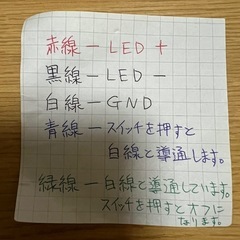 赤線ーLED＋
黒線ーLEDー
白線ーGND
青線ースイッチを押すと
白線と導通します。
緑線ー白線と導通しています。
スイッチを押すとオフに
なります。